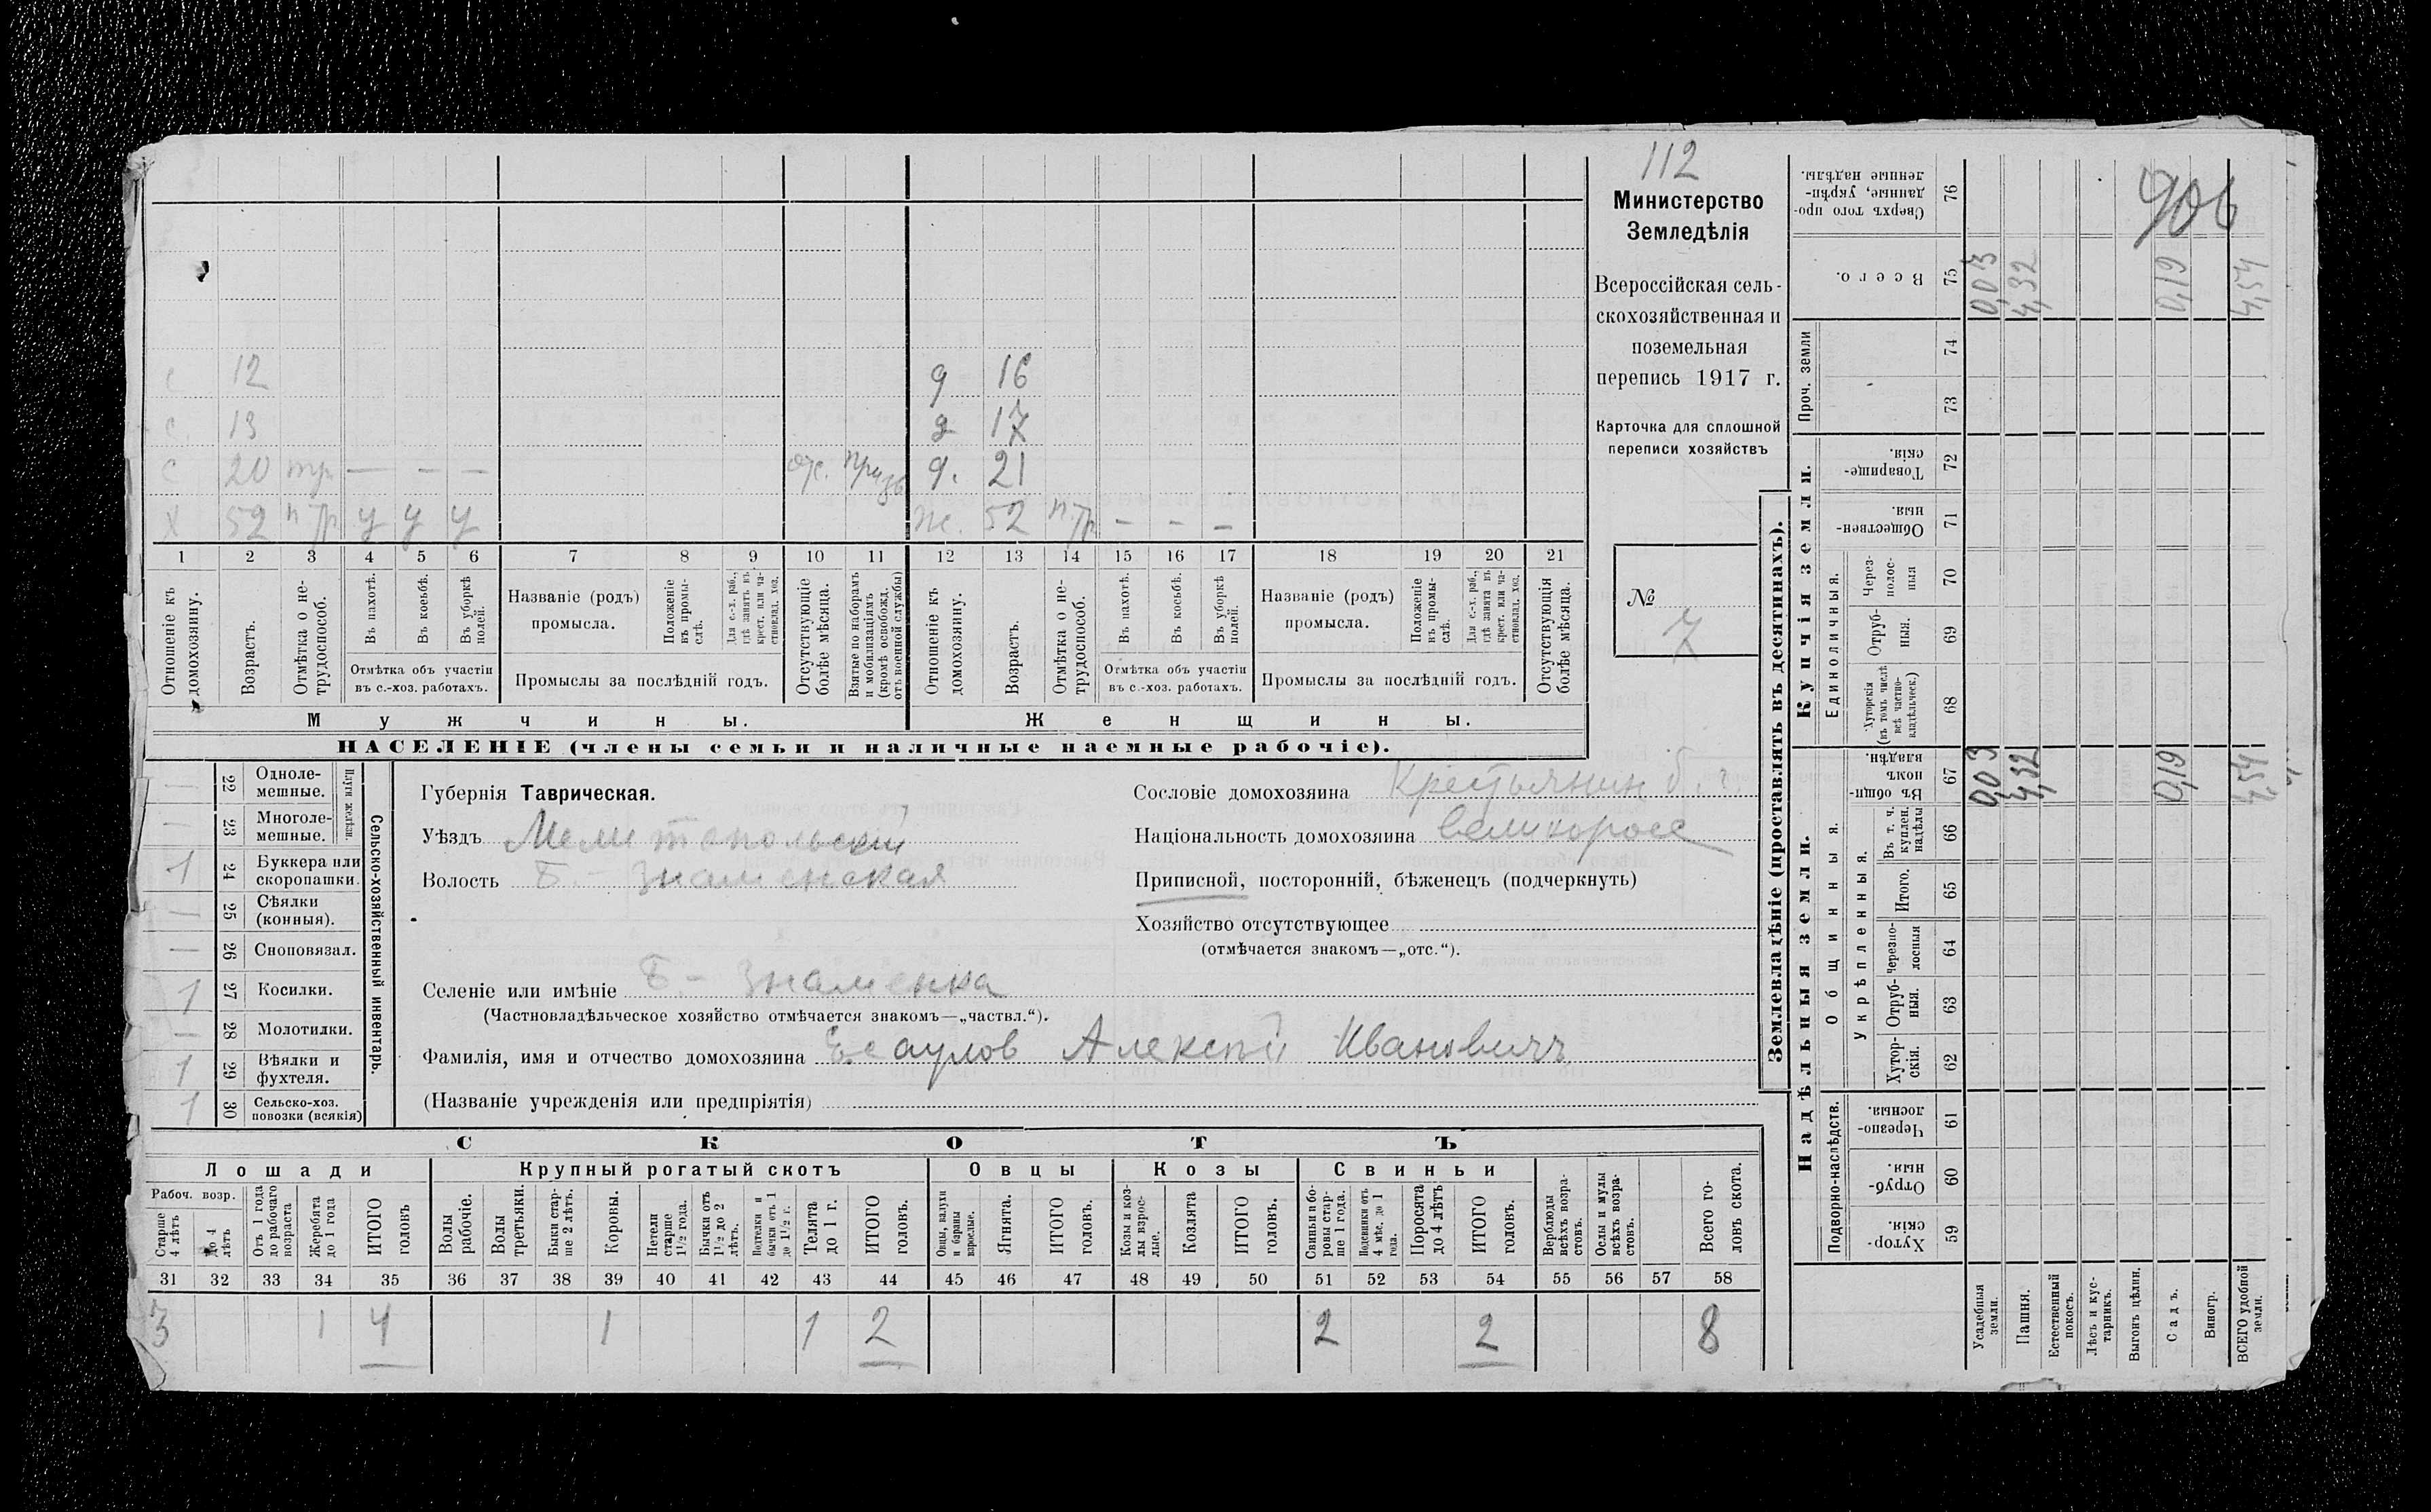 112
Министерство
Земледѣлія
Всероссійская сель-
скохозяйственная и
поземельная
перепись 1917 г.
Карточка для сплошной
переписи хозяйствъ
№
7
с 12 д 16
с. 13 д 17
с 20 тр — — — от. призв д. 21
х 52 п тр у у у ж. 52 п тр — — —
1 2 3 4 5 6 7 8 9 10 11 12 13 14 15 16 17 18 19 20 21
Отношеніе къ домохозяину.
Возрастъ.
Отмѣтка о не-трудоспособ.
Въ пахотѣ.
Въ косьбѣ.
Въ уборкѣ полей.
Отмѣтка объ участіи
въ с.-хоз. работахъ.
Названіе (родъ)
промысла.
Положеніе въ промы-слѣ.
Для с.-х. раб., гдѣ занятъ въ крест. или ча-стновлад. хоз.
Промыслы за послѣдній годъ.
Отсутствующіе болѣе мѣсяца.
Взятые по наборамъ и мобилизаціямъ (кромѣ освобожд. отъ военной службы)
Отношеніе къ домохозяину.
Возрастъ.
Отмѣтка о не-трудоспособ.
Въ пахотѣ.
Въ косьбѣ.
Въ уборкѣ полей.
Отмѣтка объ участіи
въ с.-хоз. работахъ.
Названіе (родъ)
промысла.
Положеніе въ промы-слѣ.
Для с.-х. раб., гдѣ занята въ крест. или ча-стновлад. хоз.
Промыслы за послѣдній годъ.
Отсутствующія болѣе мѣсяца.
Мужчины.
Женщины.
НАСЕЛЕНІЕ (члены семьи и наличные наемные рабочіе).
Сельско-хозяйственный инвентарь.
Плуги желѣзн.
— 22 Одноле-мешные.
— 23 Многоле-мешные.
1 24 Буккера или скоропашки.
— 25 Сѣялки (конныя).
— 26 Сноповязал.
1 27 Косилки.
— 28 Молотилки.
1 29 Вѣялки и фухтеля.
1 30 Сельско-хоз. повозки (всякія)
Губернія Таврическая.
Уѣздъ Мелитопольскій
Волость Б.-Знаменская
Сословіе домохозяина Крестьянин
Національность домохозяина великоросс
Приписной, посторонній, бѣженецъ (подчеркнуть)
Хозяйство отсутствующее
(отмѣчается знакомъ—„отс.“).
Селеніе или имѣніе Б.-Знаменка
(Частновладѣльческое хозяйство отмѣчается знакомъ—„частвл.“).
Фамилія, имя и отчество домохозяина Есаулов Алексѣй Ивановичъ
(Названіе учрежденія или предпріятія)
СКОТЪ
Лошади
Крупный рогатый скотъ
Овцы
Козы
Свиньи
Рабоч. возр.
Старше 4 лѣтъ
До 4 лѣтъ
Отъ 1 года до рабочаго возраста
Жеребята до 1 года
ИТОГО головъ
Волы рабочіе.
Волы третьяки.
Быки стар-ше 2 лѣтъ.
Коровы.
Нетели старше 1½ года.
Бычки отъ 1½ до 2 лѣтъ.
Подтелки и бычки отъ 1 до 1½ г.
Телята до 1 г.
ИТОГО головъ.
Овцы, валухи и бараны взрослые.
Ягнята.
ИТОГО головъ.
Козы и коз-лы взрос-лые.
Козлята
ИТОГО головъ.
Свиньи и бо-ровы стар-ше 1 года.
Подсвинки отъ 4 мѣс. до 1 года.
Поросята до 4 лѣтъ
ИТОГО головъ.
Верблюды всѣхъ возра-стовъ.
Ослы и мулы всѣхъ возра-стовъ.
Всего го-ловъ скота.
31 32 33 34 35 36 37 38 39 40 41 42 43 44 45 46 47 48 49 50 51 52 53 54 55 56 57 58
3 1 4 1 1 2 2 2 8
Землевладѣніе (проставлять въ десятинахъ).
Купчія земли.
Надѣльныя земли.
Проч. земли
Единоличныя.
Общинныя.
Укрѣпленныя.
Подворно-наслѣдств.
Сверхъ того про-данные, укрѣп-ленные надѣлы. 76
Всего. 75 0,03 4,32 0,19 4,54
74
73
Товарище-скія. 72
Обществен-ныя. 71
Через-полос-ныя 70
Отруб-ныя. 69
Хуторскія (въ томъ числѣ всѣ частно-владѣльческ.) 68
Въ общин-номъ владѣн. 67 0,03 4,32 0,19 4,54
Въ т. ч. куплен. надѣлы 66
Итого. 65
Черезпо-лосныя 64
Отруб-ныя. 63
Хутор-скія. 62
Черезпо-лосныя. 61
Отруб-ныя. 60
Хутор-скія. 59
Усадебныя земли.
Пашня.
Естественный покосъ.
Лѣсъ и кус-тарникъ.
Выгонъ цѣлин.
Садъ.
Виногр.
ВСЕГО удобной земли.
906